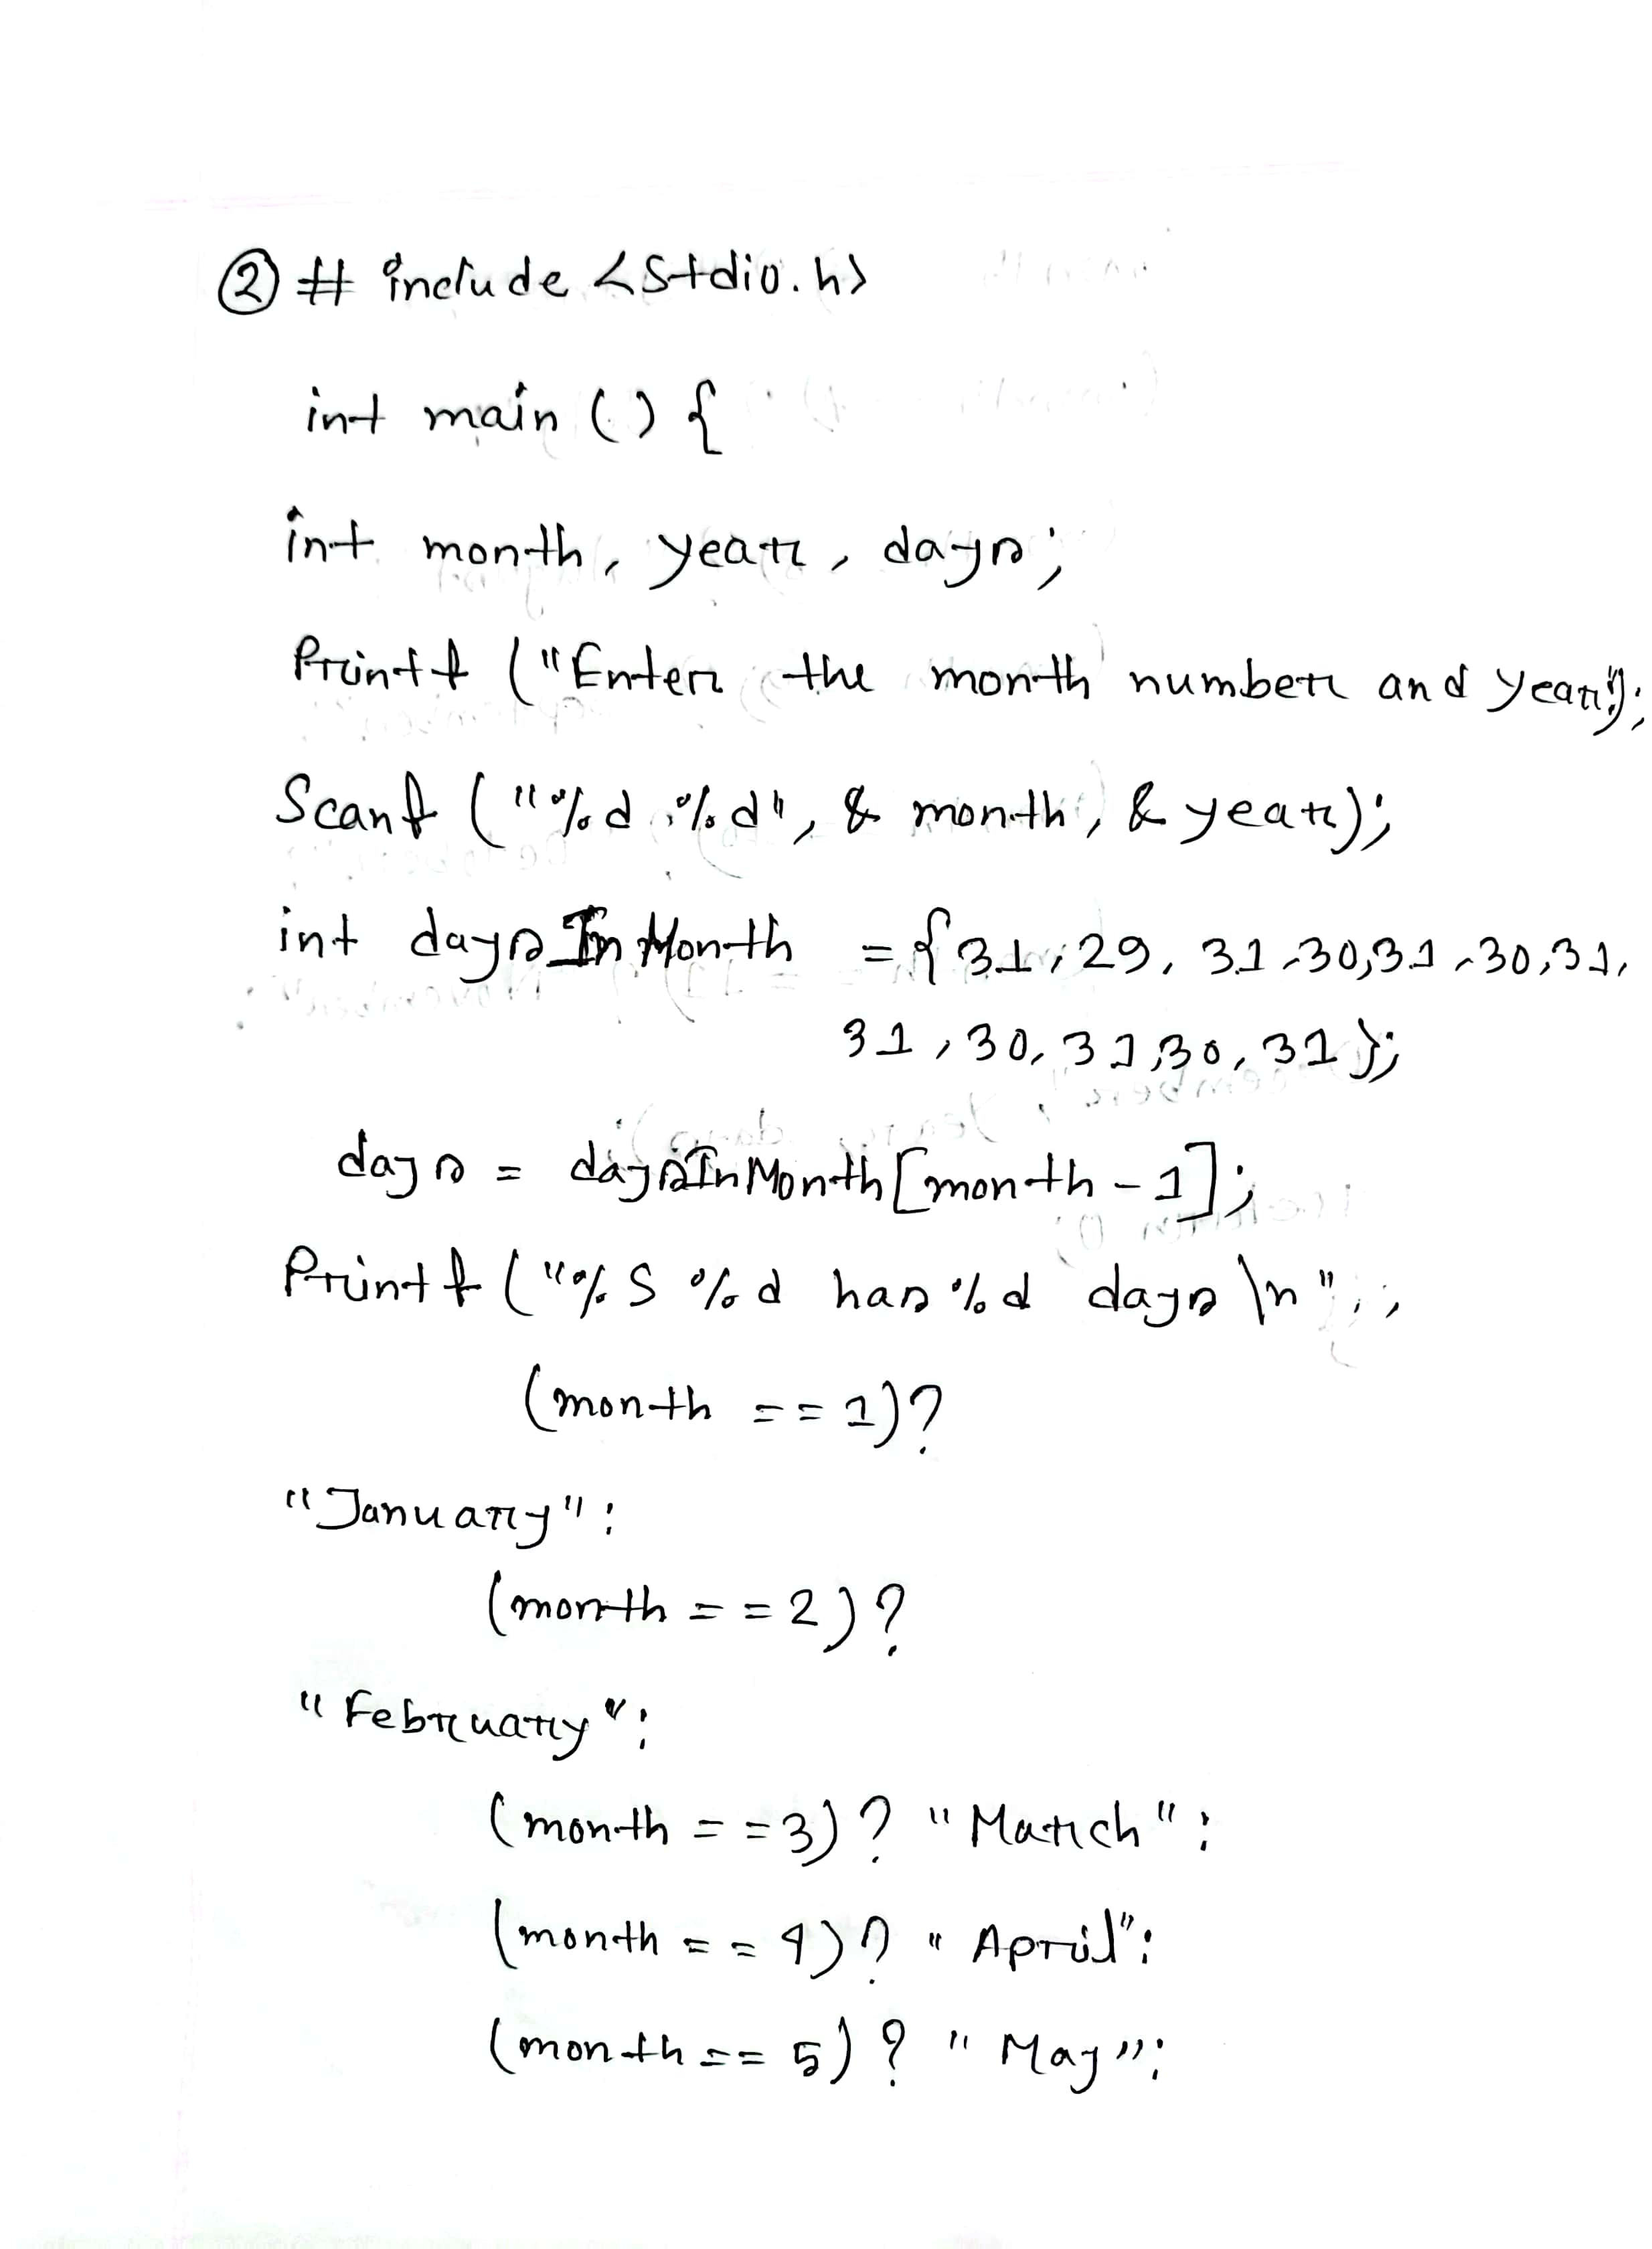 ② # include <Stdio.h>
int main () {
int month, year, days;
Printf ("Enter the month number and year");
Scanf ("%d %d", & month, & year);
int daysInMonth = {31, 29, 31, 30, 31, 30, 31,
31, 30, 31, 30, 31};
days = daysInMonth[month - 1];
Printf ("%S %d has %d days \n",
(month == 1)?
"January":
(month == 2)?
"February":
(month == 3)? "March":
(month == 4)? "April":
(month == 5)? "May":